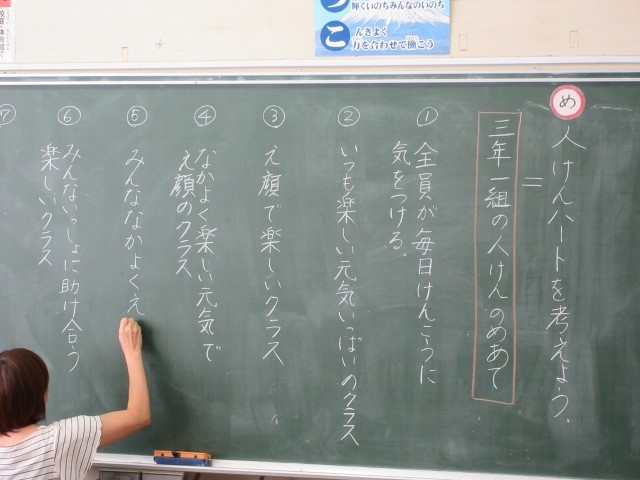 め
人けんハートを考えよう。
=
三年一組の人けんのめあて
① 全員が毎日けんこうに
気をつける。
② いつも楽しい元気いっぱいのクラス
③ え顔で楽しいクラス
④ なかよく楽しい元気で
え顔のクラス
⑤ みんななかよくえ
⑥ みんないっしょに助け合う
楽しいクラス
⑦
輝くいのちみんなのいのち
こ
んきよく
力を合わせて働こう